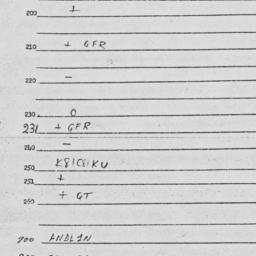 200 +
210 + GFR
220 -
230 0
231 + GFR
240 -
250 K81C81KU
251 +
260 + GT
700 ANDLIN